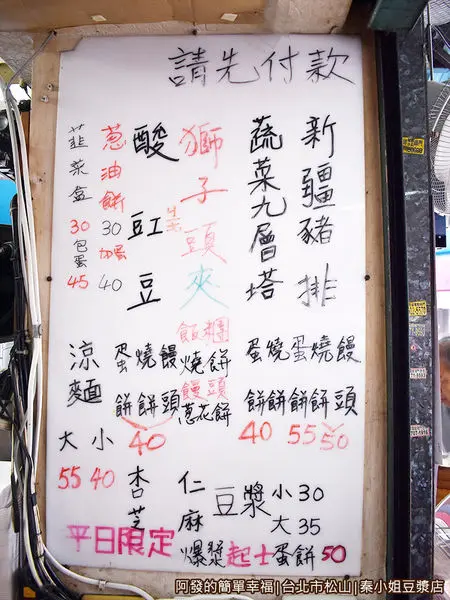 請先付款
新疆豬排
蛋餅
燒餅
饅頭
55 50
蔬菜九層塔
蛋餅
燒餅
40
獅子頭夾
飯糰
燒餅
饅頭
蔥花餅
酸豇豆
蛋餅
燒餅
饅頭
40
蔥油餅
30
加蛋
40
韭菜盒
30
包蛋
45
涼麵
大 小
55 40
平日限定
杏仁豆漿 小30
芝麻 大35
爆漿起士蛋餅50
阿發的簡單幸福|台北市松山|秦小姐豆漿店